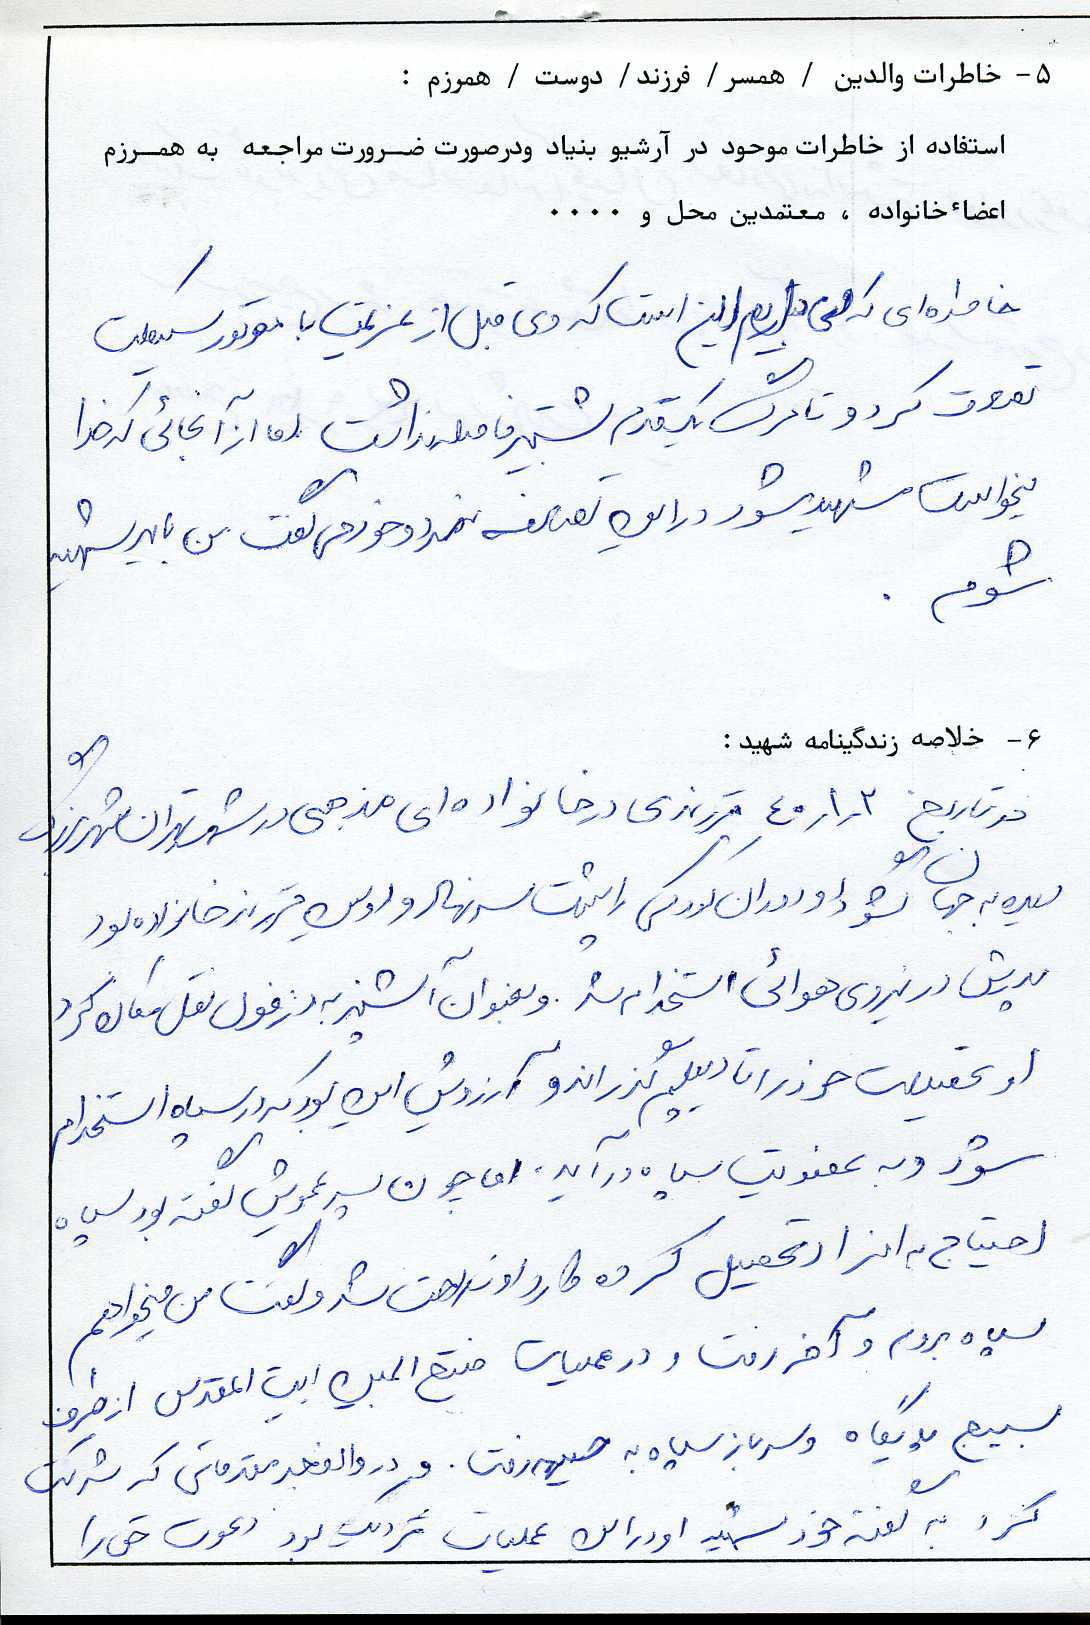 ۵- خاطرات والدین / همسر / فرزند / دوست / همرزم :
استفاده از خاطرات موجود در آرشیو بنیاد ودرصورت ضرورت مراجعه به همرزم
اعضاء خانواده ، معتمدین محل و ۰۰۰۰
خاطره‌ای که این است که وی قبل از عزیمت با موتور سیکلت
تصادف کرد و تا مرگ یک قدم بیشتر فاصله نداشت اما از آنجائی که خدا
میخواست شهید شود در این تصادف نمرد و خود می گفت من باید شهید
شوم .
۶- خلاصه زندگینامه شهید :
در تاریخ ۴۰٫۱٫۳ فرزندی در خانواده‌ای مذهبی در شهر تهران شهر بزرگ
دیده به جهان گشود او دوران کودکی را پشت سر نهاد و اولین فرزند خانواده بود
پدرش در نیروی هوائی استخدام شد . و بعنوان آشپز به دزفول نقل مکان کرد
او تحصیلات خود را تا دیپلم گذراند و آرزویش این بود که در سپاه استخدام
شود و به عضویت سپاه در آید . اما چون پسر عمویش گفته بود سپاه
احتیاج به افراد تحصیل کرده دارد او ناراحت شد و گفت من میخواهم
سپاه بروم و آخر رفت و در عملیات فتح المبین ابیت المقدس از طرف
بسیج پایگاه و سرباز سپاه به جبهه رفت . و در والفجر مقدماتی که شرکت
کرد به گفته خود شهید او در این عملیات شرکت بود دعوت حق را